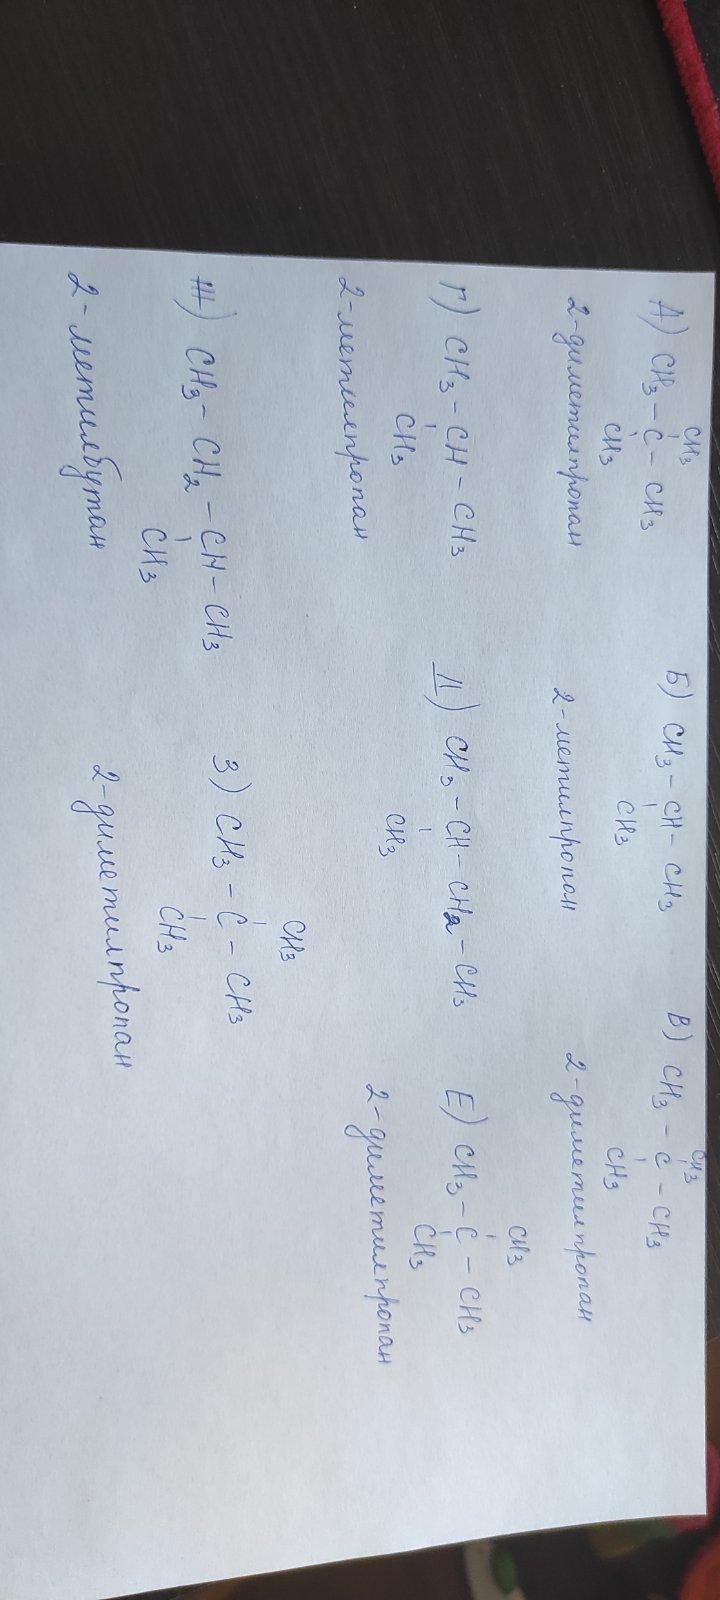 CH3
А) CH3 - C - CH3
CH3
2-диметилпропан
Б) CH3 - CH - CH3
CH3
2-метилпропан
CH3
В) CH3 - C - CH3
CH3
2-диметилпропан
Г) CH3 - CH - CH3
CH3
2-метилпропан
Д) CH3 - CH - CH2 - CH3
CH3
CH3
Е) CH3 - C - CH3
CH3
2-диметилпропан
Ж) CH3 - CH2 - CH - CH3
CH3
2-метилбутан
CH3
З) CH3 - C - CH3
CH3
2-диметилпропан